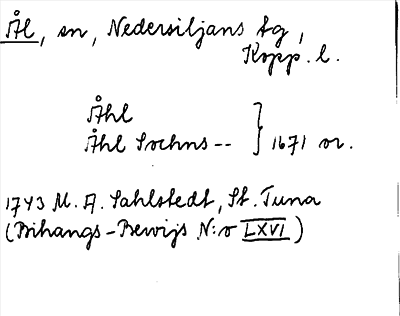 Ål, sn, Nedersiljans tg,
Kopp. l.
Åhl
Åhl Sochns -- } 1671 or.
1743 M. A. Sahlstedt, St. Tuna
(Bihangs-Bewijs N:o LXVI)